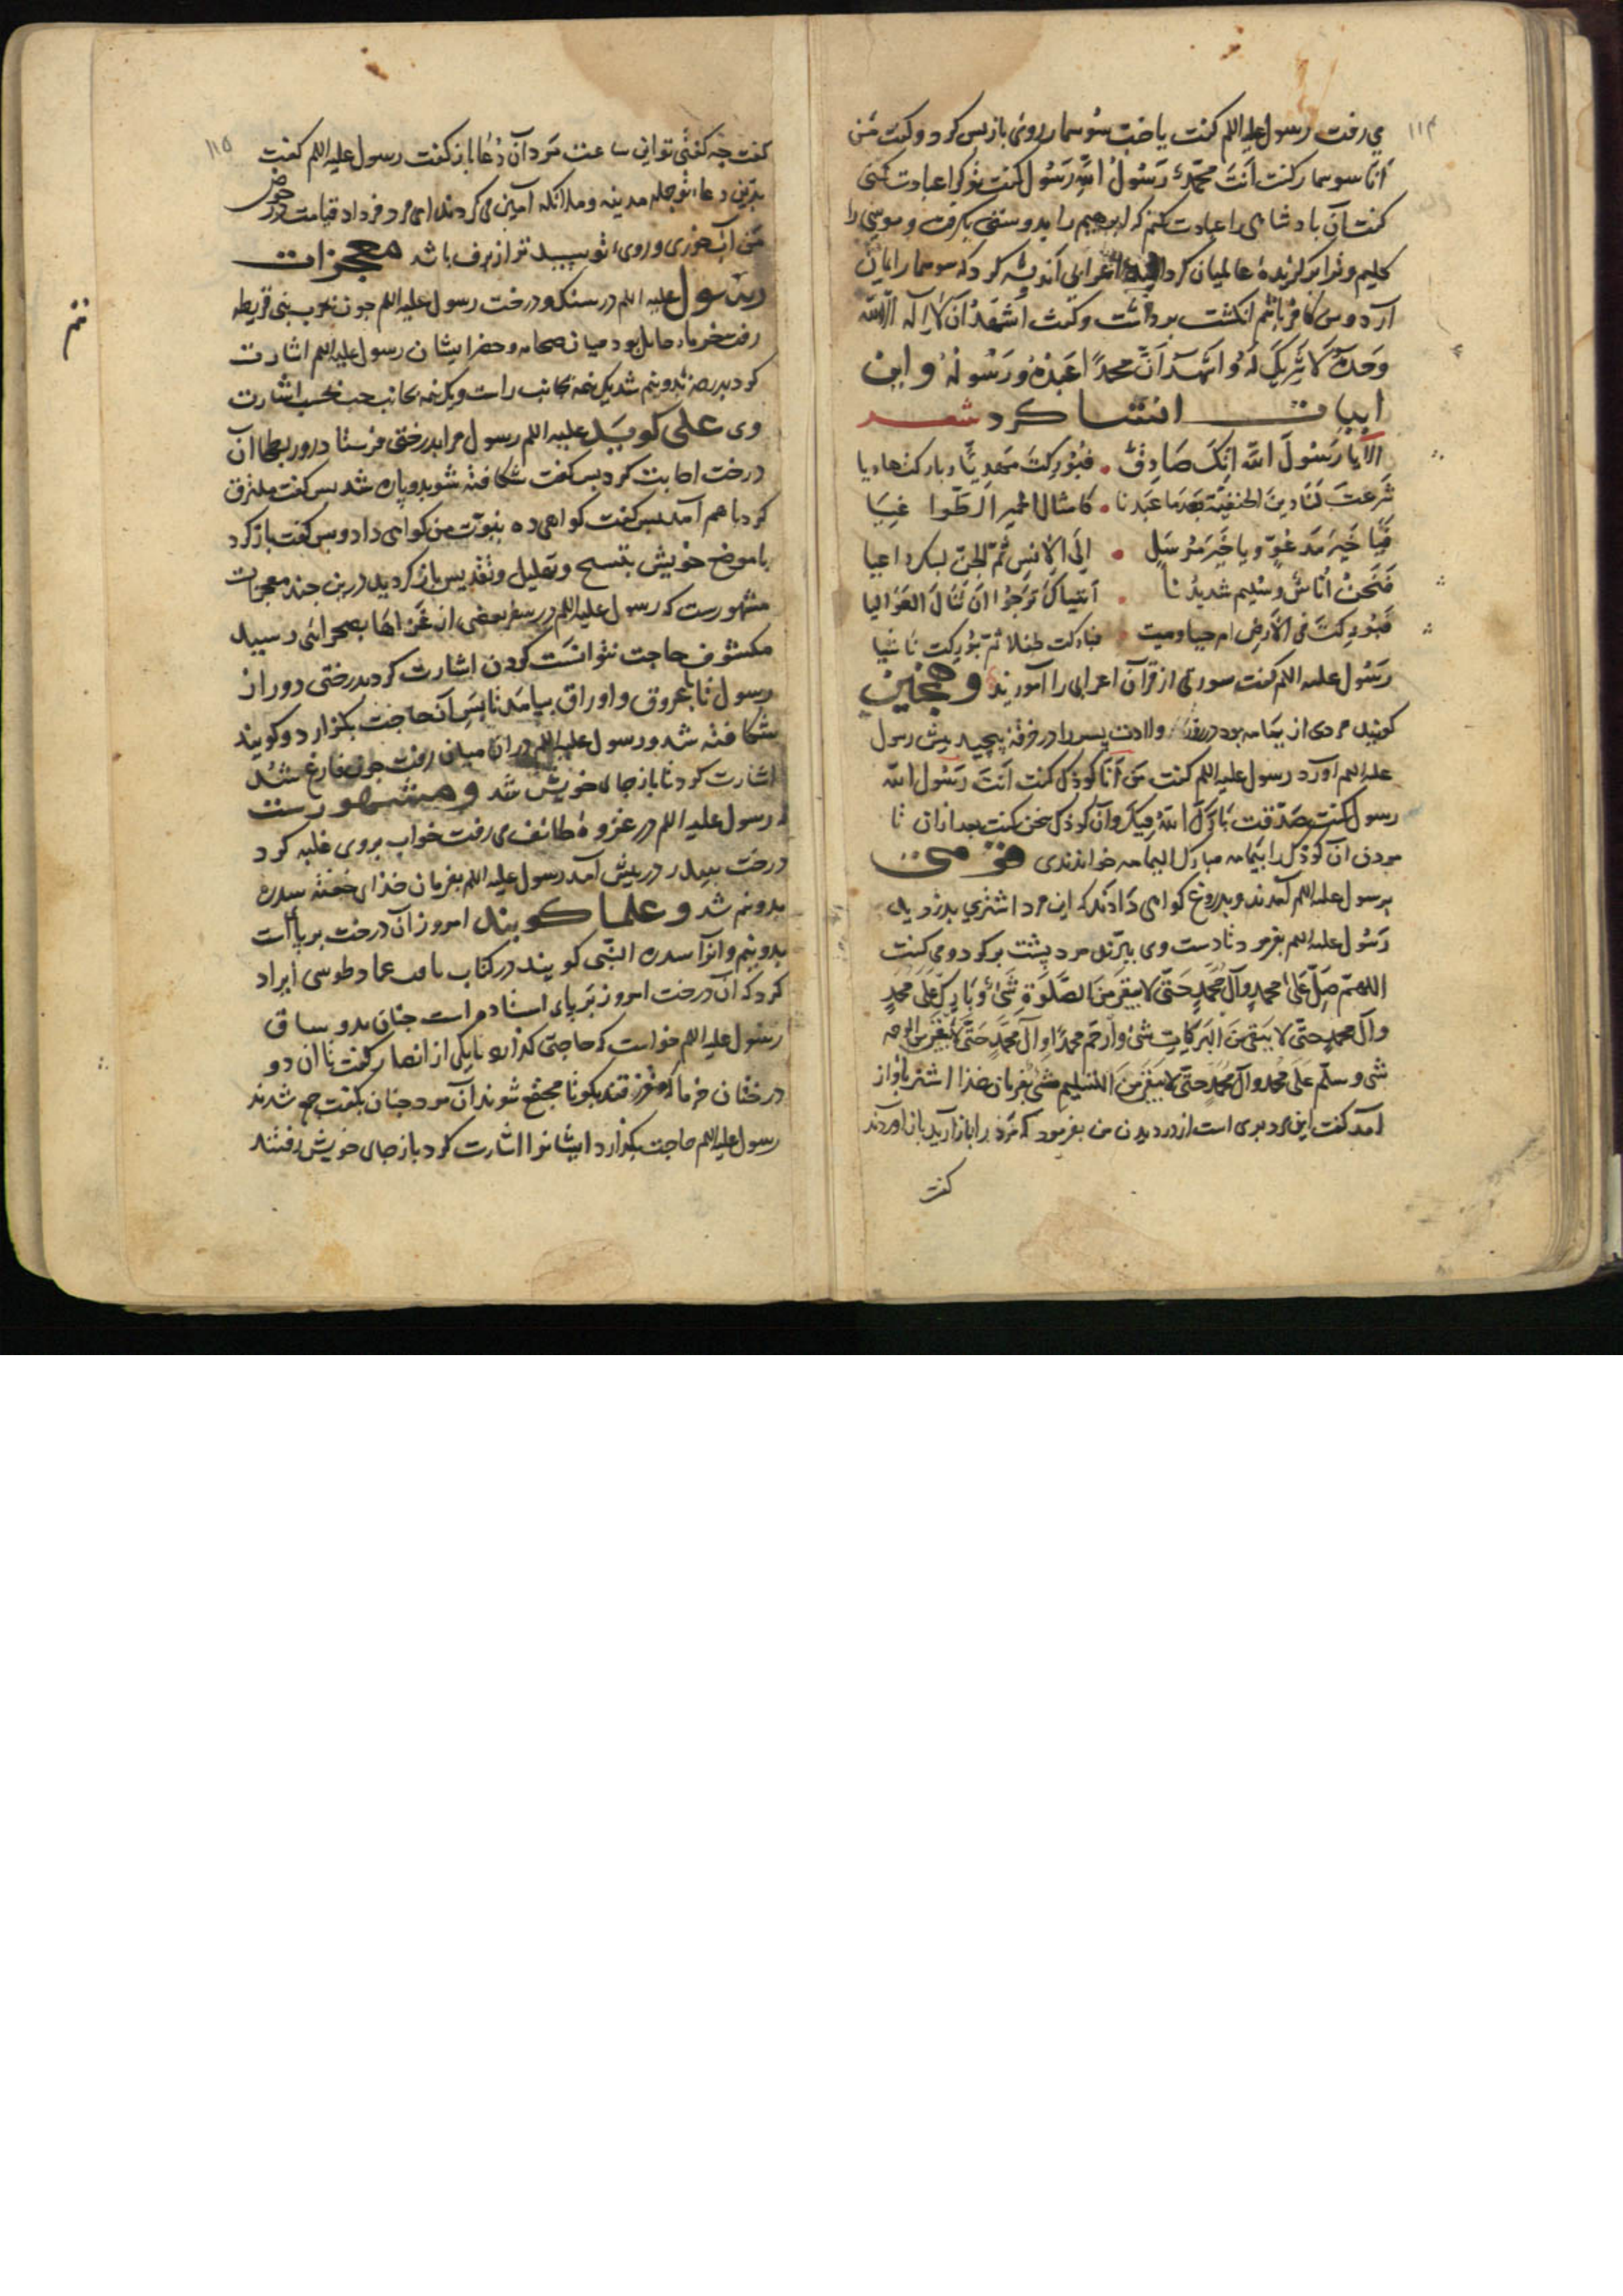 ۱۱۴
می رفت رسول علیه اللم کفت یا ضب سوسمار روی باز پس کرد و کفت من
انا سوسمار کفت اَنتَ محمّدٌ رَسُولُ اللّه رَسُول کفت تو کرا عبادت کنی
کفت آن بادشاهی را عبادت کنم که ابرهیم را بدوستی بکرفت و موسی را
کلیم و ترا برکزیدهٔ عالمیان کرد اعرابی اندیشه کرد که سوسمار ایمان
آرد و من کافر باشم انکشت برداشت و کفت اَشهَدُ اَن لا اِلَه اِلّا اللّه
وَحدَهُ لَا شَرِیکَ لَهُ وَ اشهَدُ اَنَّ محمدًا عَبدُهُ وَ رَسُولُهُ و این
ابیات انشا کرد شعر
اَلا یَا رَسُولَ اللّه اِنّکَ صَادِقٌ • فبُورِکتَ مَهدِیًّا و بارکت هادیا
شَرَعتَ لَنَا دِینَ الحنفیّة بَعدَ مَا عَبَدنا • کامثال الحمیر الطَّوا غِیَا
فَیَا خَیرَ مَدعُوٍّ و یا خَیرَ مُرسَلٍ • اِلَی الاِنسِ ثُمّ الجنّ لبیک داعیا
فَنَحنُ اُنَاسٌ وسُلیم شدیدُنا • اَتَیناکَ نَرجُوا اَن نَنَالَ العَوَالیا
فَبُورِکتَ فی الاَرضِ ام حیا و میت • فبارکت طفلا ثم بُورِکت ناشیا
رَسُول علیه اللم کفت سورتی از قرآن اعرابی را آمورید و همچنین
کویند مردی از یمامه بود در روز ولادت پسر را در خرقه پیچید پیش رسول
علیه اللم آورد رسول علیه اللم کفت مَن اَنَا کوذک کفت اَنتَ رَسُول اللّه
رسول کفت صَدَّقتَ بَارَکَ اللّهُ فیکَ و آن کوذک سخن نکفت بعد از ان تا
مردن آن کوذک را بیمامه مبارک الیمامه خواندندی قومی
برسول علیه اللم آمدند و بدروغ کواهی دَادَند که این مرد اشتری بدزدید
رَسُول علیه اللم بفرمود تا دست وی ببرّند مرد پشت برکرد و می کفت
اللهمّ صَلِّ عَلیٰ محمدٍ وآل مُحَمَّدٍ حَتّیٰ لا یبقی مِنَ الصَّلوةِ شَئٌ وَ بَارِک عَلیٰ مُحمدٍ
وآل محمدٍ حتّی لا یَبقی مِنَ البَرَکَاتِ شئ وارحَم محمدًا و آل مُحَمَّدٍ حَتَّی لا یبقی من الرحمه
شی و سلّم عَلَی مُحمد وآل مُحمّدٍ حتّی لا یبقی مِنَ التسلیم شئ بفرمان خذا اشتر باواز
آمد کفت این مرد بری است از دزدیدن من بفرمود که مَرد را باز آرید باز آوردند
کفت
۱۱۵
کفت چه کفتی تو این ساعت مَرد آن دُعا باز کفت رسول علیه اللم کفت
بدین دعاء تو جمله مدینه و ملائکه آمین می کردند ای مرد فردا د قیامت در حوض
من آب خوری و روی تو سپید تر از برف باشد معجزات
رسول علیه اللم در سنک و درخت رسول علیه اللم جون بحرب بنی قریطه
رفت خرما حایل بود میان صحابه و حضر ایشان رسول علیه اللم اشارت
کرد بدو نیم شد یک نیمه بجانب راست و یک نیمه بجانب جب بحسب اشارت
وی علی کوید علیه اللم رسول مرا بدرختی فرستاد در ور بطحا آن
درخت اجابت کرد پس کفت شکافته شو بدو پاره شد پس کفت ملتزق
کرد با هم آمد پس کفت کواهی ده بنبوّت من کواهی داد و پس کفت باز کرد
با موضع خویش بتسبیح و تهلیل و تقدیس باز کردید در بن جند معجزات
مشهورست که رسول علیه اللم در سفر بعضی از غَزَاهَا بصحرائی رسید
مکشوف حاجت نتوانست کردن اشارت کرد بدرختی دور از
رسول تا با عروق و اوراق بیامد تا پس آن حاجت بکزارد و کویند
شکافته شد و رسول علیه اللم در ان میان رفت جون فارغ شد
اشارت کرد تا باز جای خویش شد و مشهورست
که رسول علیه اللم در غزوهٔ طائف می رفت خواب بر وی غلبه کرد
درخت سدر در پیش آمد رسول علیه اللم بفرمان خذای خفته سدره
بدو نیم شد و علما کویند امروز آن درخت بر پا است
بدو نیم و انرا سدرة النبی کویند در کتاب ثاقب عماد طوسی ایراد
کرد که آن درخت امروز بَر پای استاده است جنان بدو ساق
رسول علیه اللم خواست که حاجتی کذارد با یکی از انصار کفت تا ان دو
درختان خرما که متفرقند بکو تا مجتمع شوند آن مرد جنان بکفت جمع شدند
رسول علیه اللم حاجت بکزارد ایشانرا اشارت کرد باز جای خویش رفتند